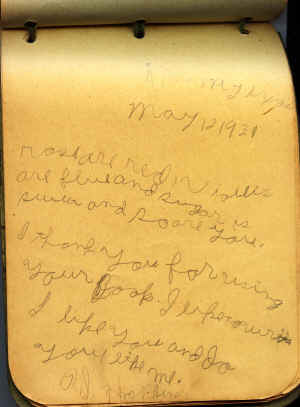 May 12 1931
rose are red Vilets
are blue and sugar is
swen and so are you.
I thank you for using
your book. I
I like you and Do
you like me.